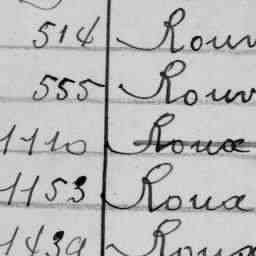 514 Rouv
555 Rouv
1110 Roux
1153 Roux
1439 Roux